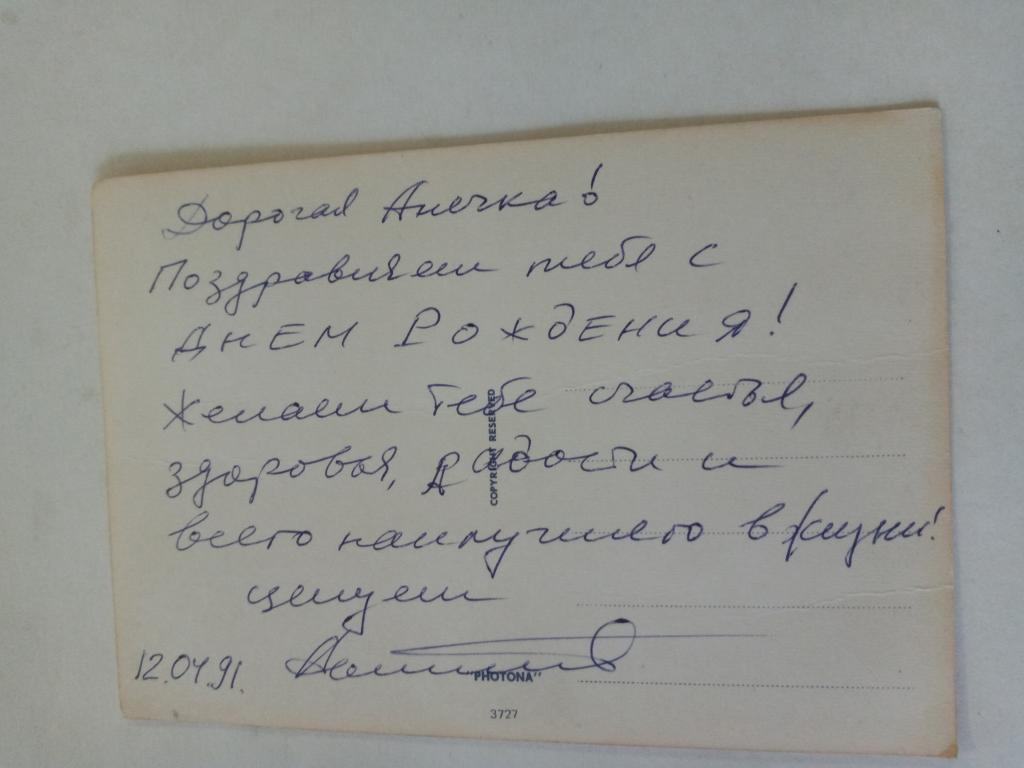 Дорогая Анечка!
Поздравляем тебя с
ДНЕМ РОЖДЕНИЯ!
Желаем тебе счастья,
здоровья, радости и
всего наилучшего в жизни!
целуем
12.04.91.
COPYRIGHT RESERVED
"PHOTONA"
3727